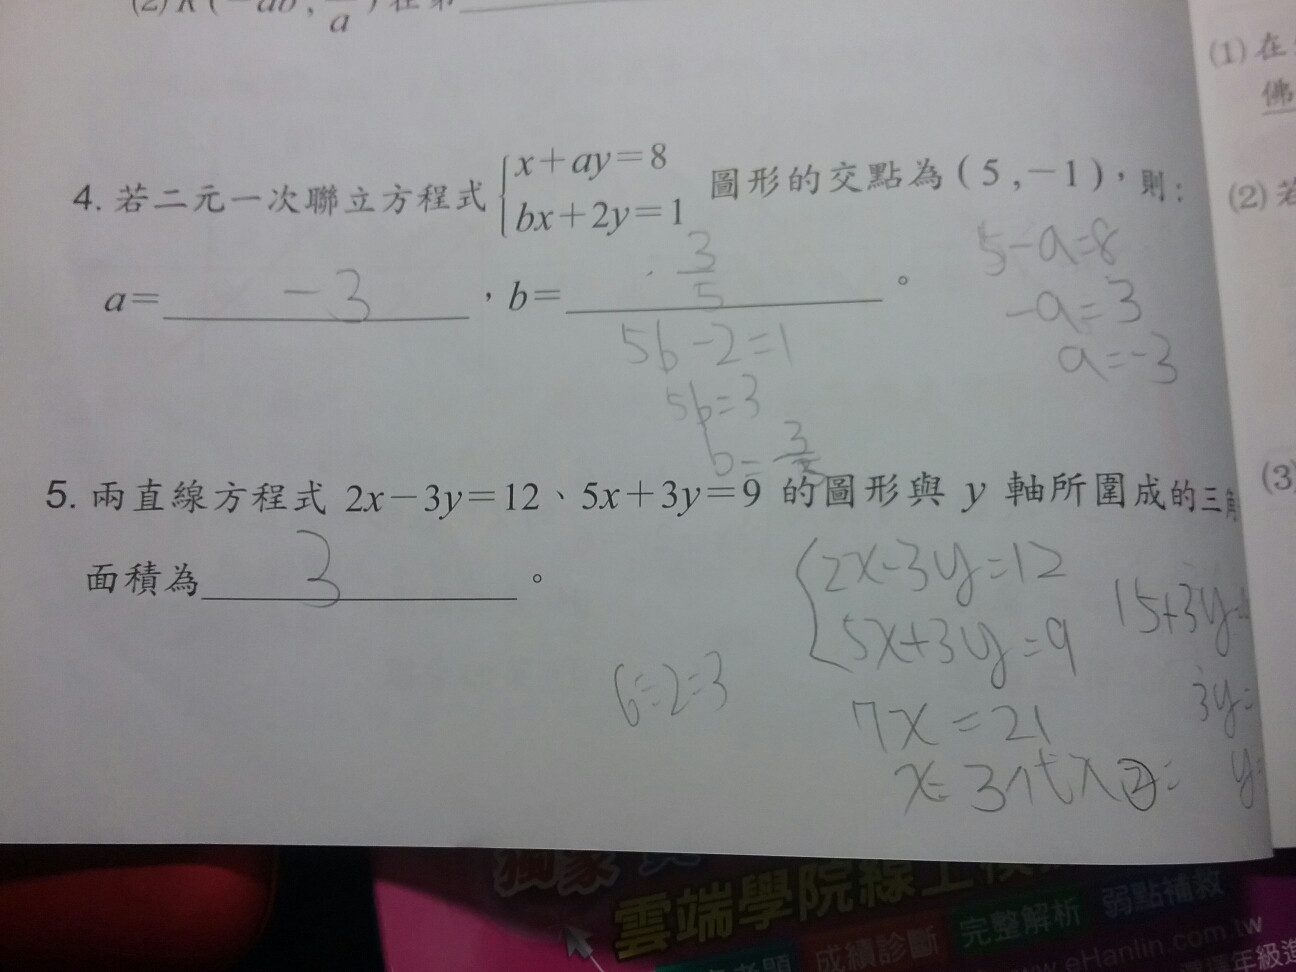 (2) R(-ab, /a) 在第
4. 若二元一次聯立方程式 { x+ay=8 圖形的交點為(5,-1),則:
bx+2y=1
a= -3 ,b= 3/5 。
5-a=8
-a=3
a=-3
5b-2=1
5b=3
b=3/5
5. 兩直線方程式 2x-3y=12、5x+3y=9 的圖形與 y 軸所圍成的三角
面積為 3 。
{ 2x-3y=12
5x+3y=9
7x=21
x=3代入②:
15+3y=
3y=
y=
6÷2=3
(1) 在
佛
(2) 若
(3)
雲端學院線上
成績診斷 完整解析 弱點補救
www.eHanlin.com.tw
年級